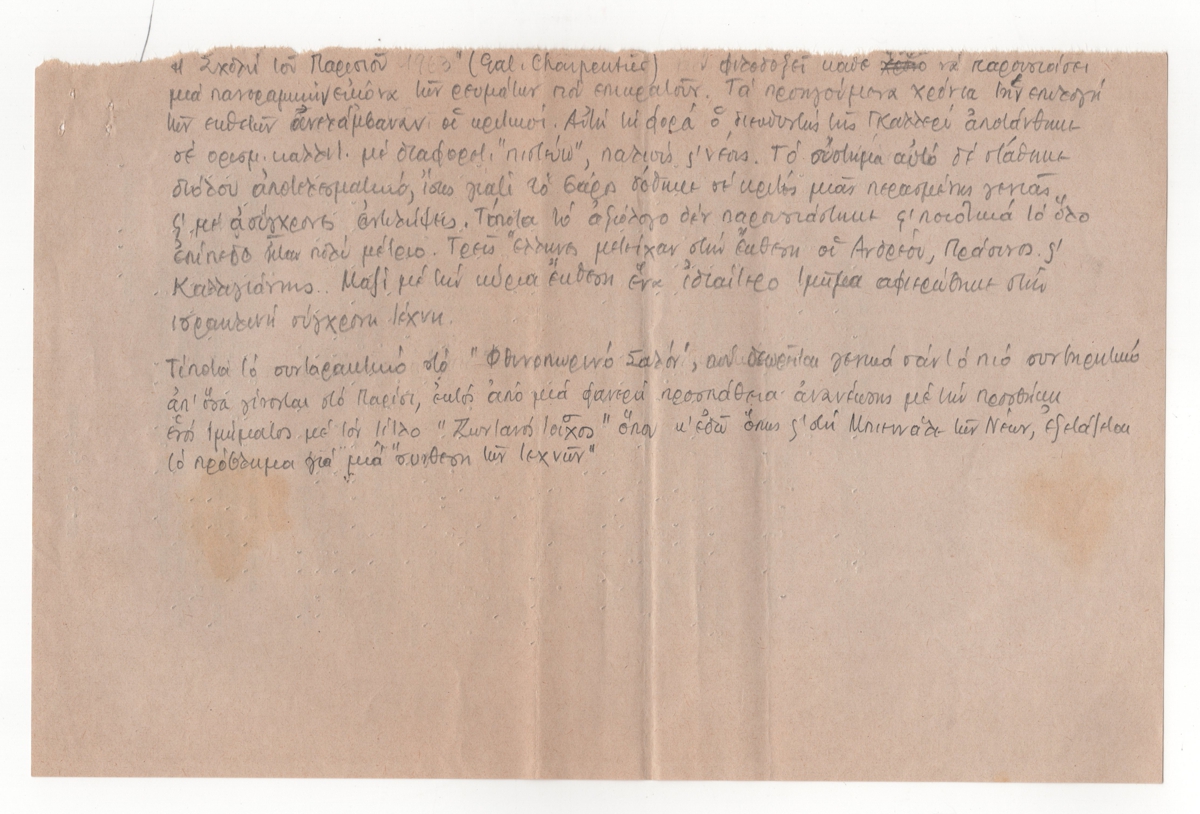 Η Σχολή τοῦ Παρισιοῦ 1963" (Gal. Charpentier) φιλοδοξεῖ κάθε να παρουσιάσει
μιά πανοραμική εικόνα τῶν ρευμάτων που επικρατοῦν. Τά προηγούμενα χρόνια τήν επιλογή
τῶν εκθετῶν ἀνελάμβαναν οἱ κριτικοί. Αὐτή τή φορά ὁ διευθυντής τῆς Γκαλλερί ἀποτάνθηκε
σέ ορισμ. καλλιτ. μέ διαφορετ. "πιστεύω", παλιούς ϛ' νέους. Τό σύστημα αὐτό δέ στάθηκε
διόλου ἀποτελεσματικό, ἴσως γιατί τό βάρος δόθηκε σέ κριτές μιᾶς περασμένης γενιᾶς
ϛ' μέ ἀσύγχρονες ἀντιλήψεις. Τίποτα τό ἀξιόλογο δέν παρουσιάστηκε ϛ' ποιοτικά τό ὅλο
ἐπίπεδο ἦταν πολύ μέτριο. Τρεῖς Ἕλληνες μετείχαν στήν ἔκθεση οἱ Ανδρέου, Πράσινος ϛ'
Καλαγιάννης. Μαζί μέ τήν κύρια ἔκθεση ἕνα ἰδιαίτερο τμῆμα αφιερώθηκε στήν
ισραηλινή σύγχρονη τέχνη.
Τίποτα τό συνταρακτικό στό "Φθινοπωρινό Σαλόν", πού θεωρεῖται γενικά σάν τό πιό συντηρητικό
ἀπ' ὅσα γίνονται στό Παρίσι, ἐκτός ἀπό μιά φανερή προσπάθεια ἀνανέωσης μέ τήν προσθήκη
ἑνός τμήματος μέ τον τίτλο "Ζωντανός τοῖχος" ὅπου κ' ἐδῶ ὅπως ϛ' στή Μπιεννάλε τῶν Νέων, ἐξετάζεται
τό πρόβλημα γιά μιά "σύνθεση τῶν τεχνῶν"